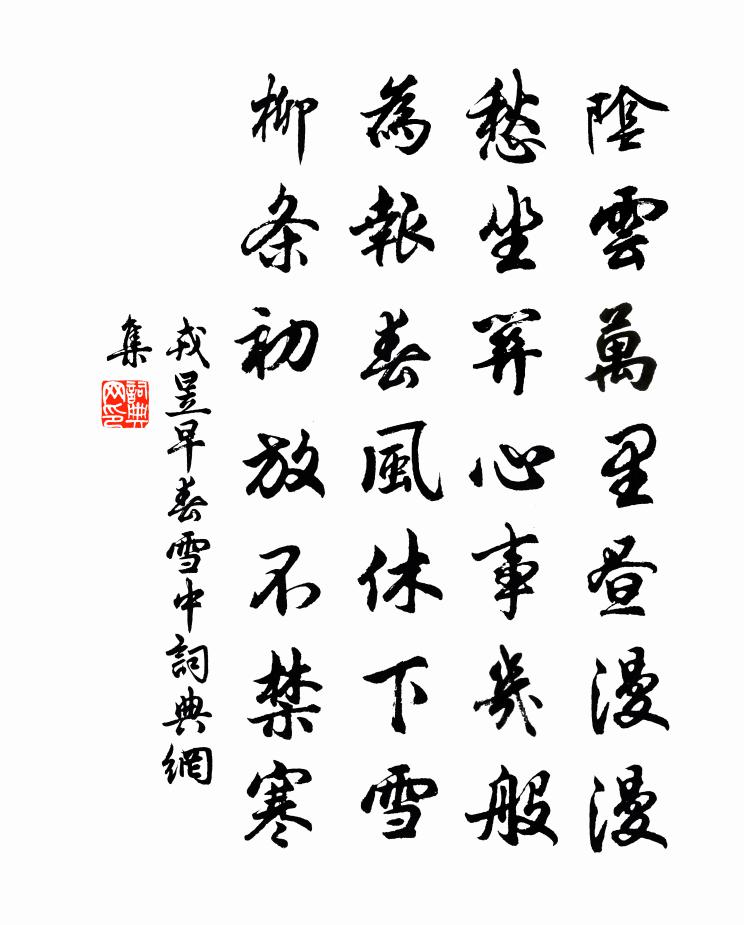 陰雲萬里晝漫漫
愁坐關心事幾般
為報春風休下雪
柳条初放不禁寒
戎昱早春雪中詞典網
集
詞典
网印